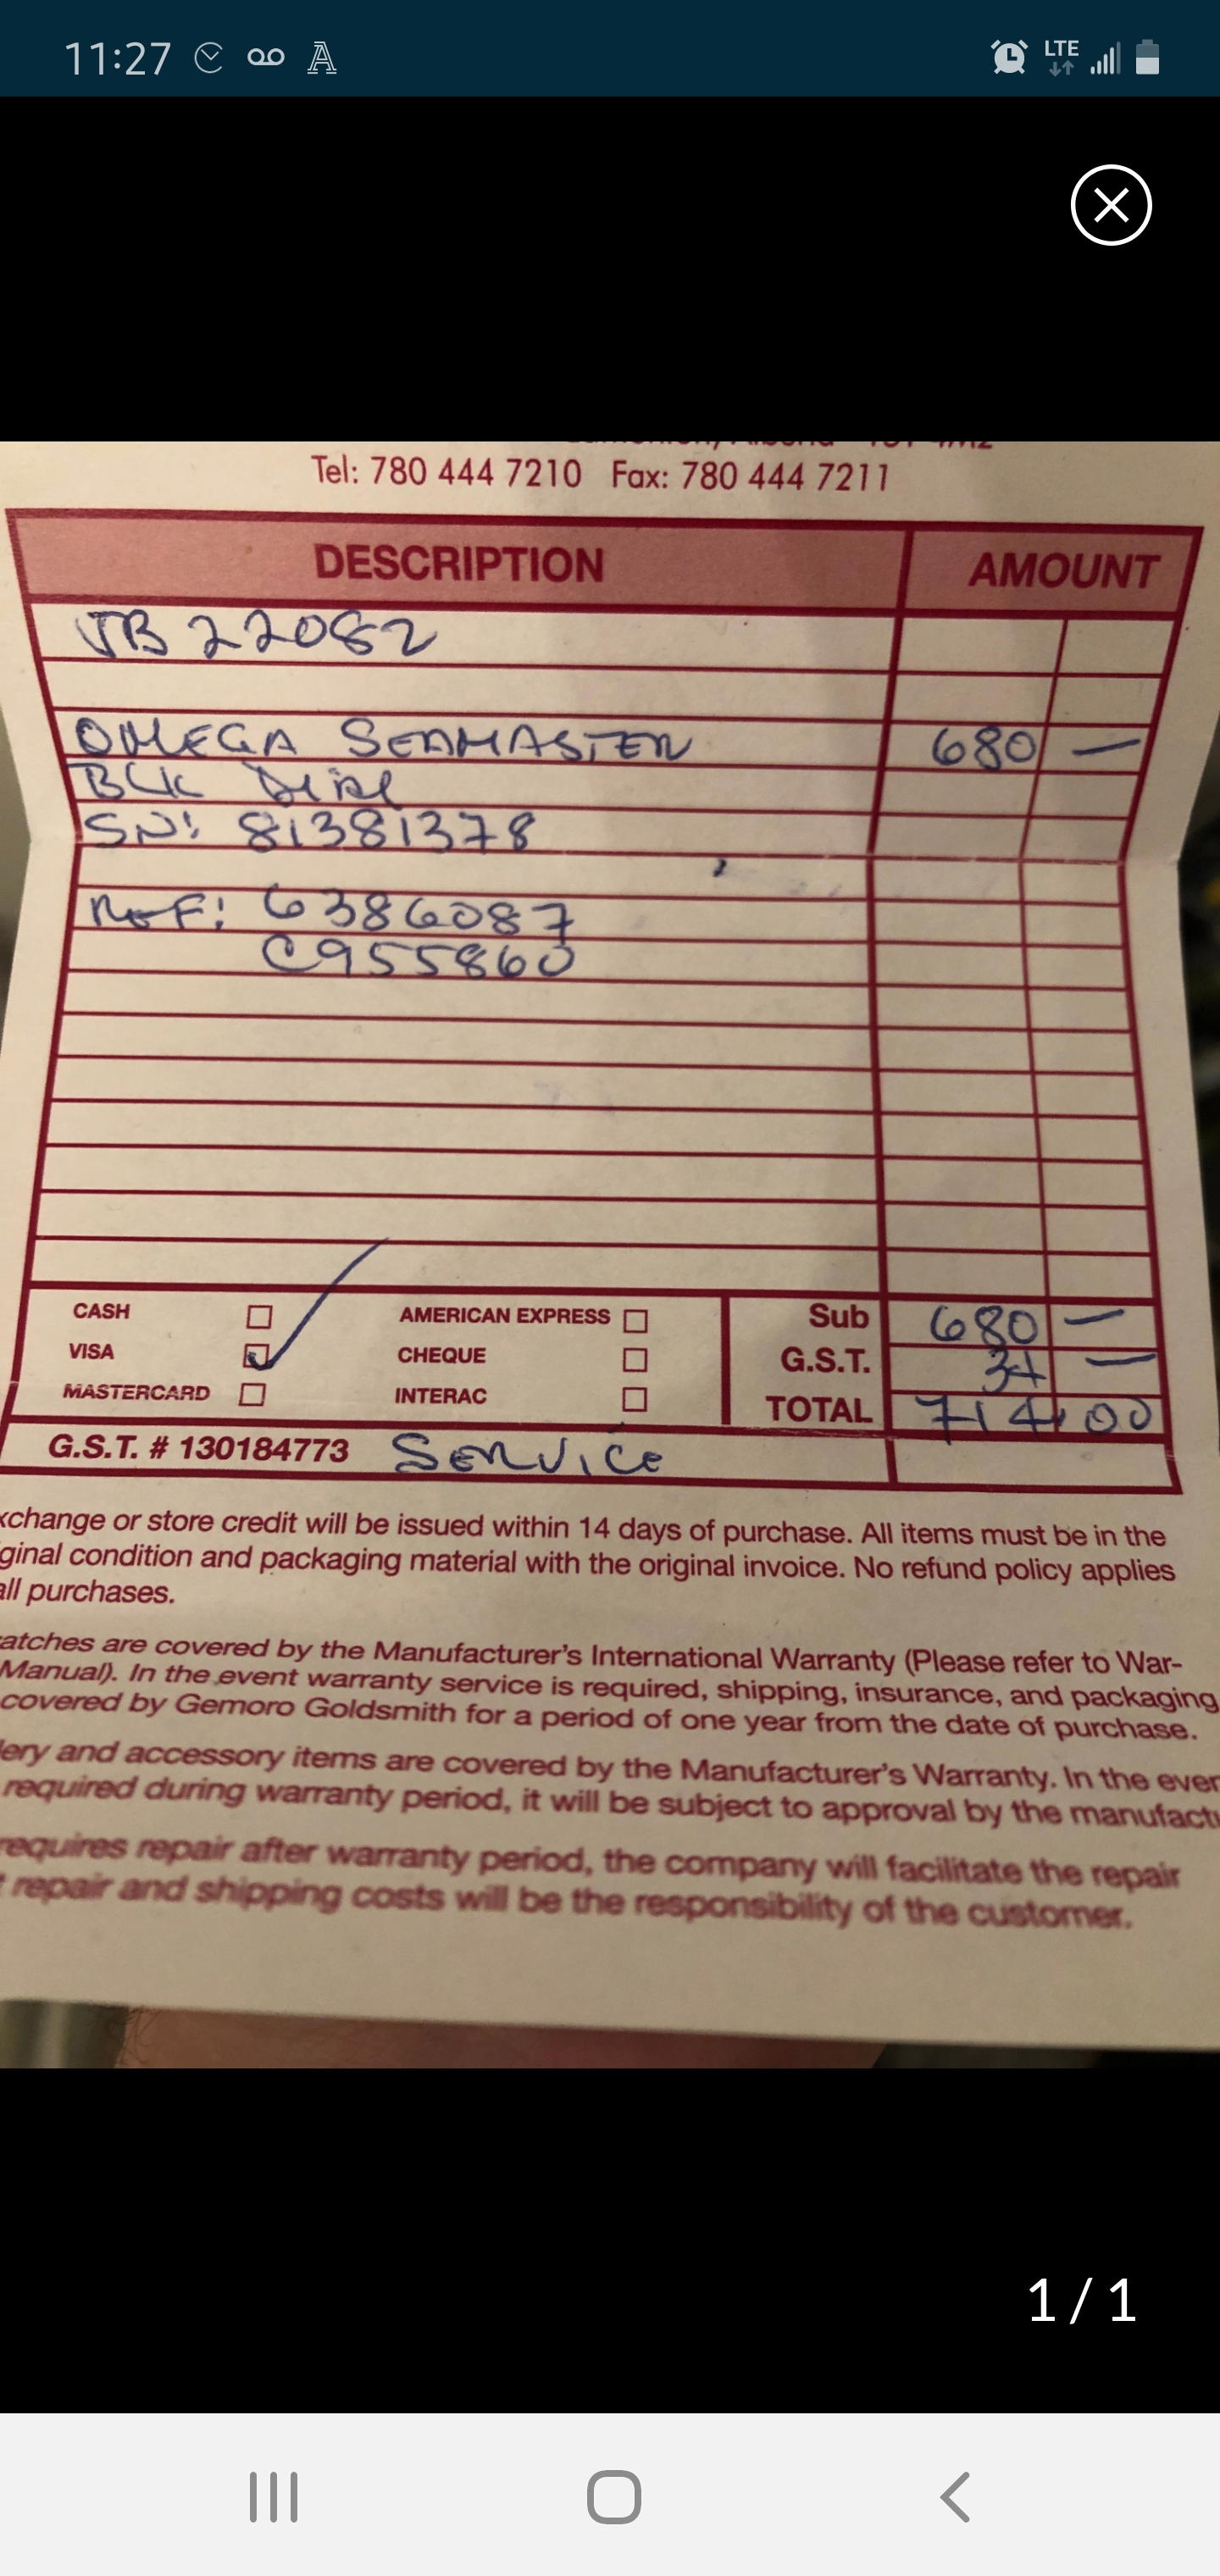 11:27
LTE
Tel: 780 444 7210 Fax: 780 444 7211
DESCRIPTION AMOUNT
JB 22082
OMEGA SEAMASTER 680 —
BLK DIAL
SN: 81381378
REF: 6386087
C955860
CASH AMERICAN EXPRESS Sub 680 —
VISA CHEQUE G.S.T. 34 —
MASTERCARD INTERAC TOTAL 714.00
G.S.T. # 130184773 SERVICE
xchange or store credit will be issued within 14 days of purchase. All items must be in the
ginal condition and packaging material with the original invoice. No refund policy applies
all purchases.
atches are covered by the Manufacturer's International Warranty (Please refer to War-
Manual). In the event warranty service is required, shipping, insurance, and packaging
covered by Gemoro Goldsmith for a period of one year from the date of purchase.
lery and accessory items are covered by the Manufacturer's Warranty. In the even
required during warranty period, it will be subject to approval by the manufactu
requires repair after warranty period, the company will facilitate the repair
repair and shipping costs will be the responsibility of the customer.
1 / 1